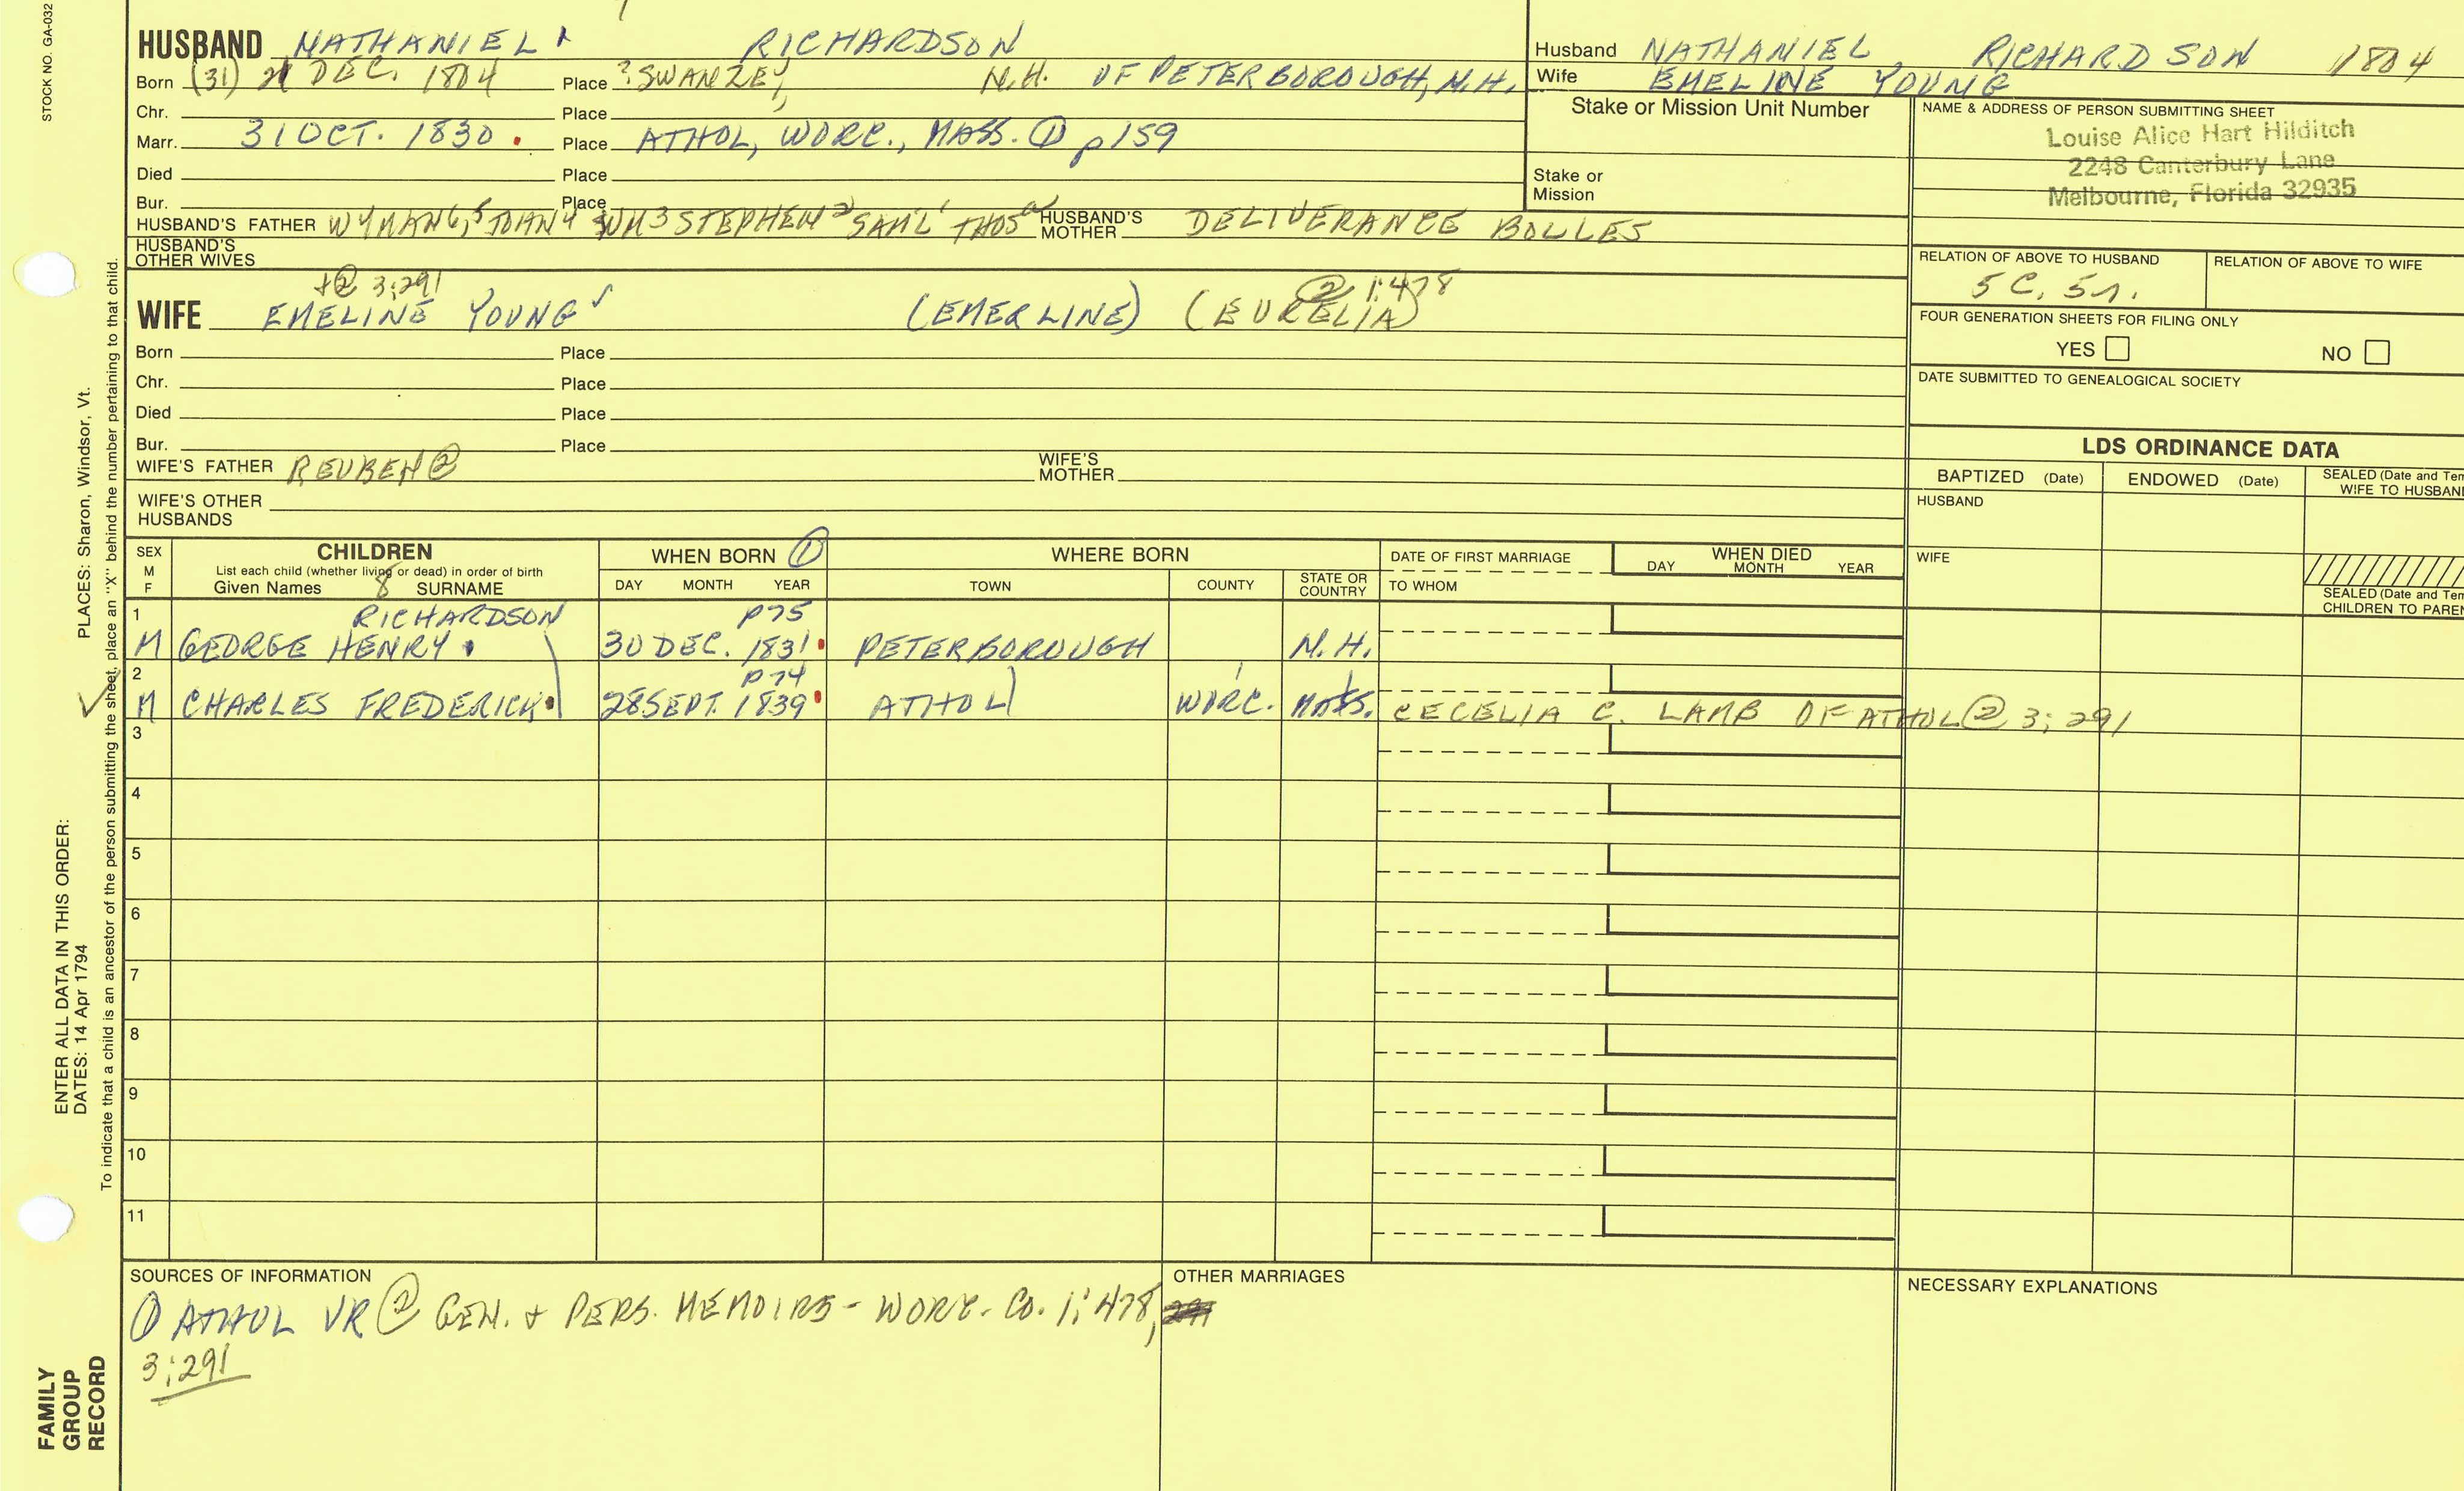 STOCK NO. GA-032
HUSBAND NATHANIEL RICHARDSON
Born (31) DEC. 1804 Place ? SWANZEY, N.H. OF PETERBOROUGH, N.H.
Chr. Place
Marr. 31 OCT. 1830. Place ATHOL, WORC., MASS. ① p159
Died Place
Bur. Place
HUSBAND'S FATHER WYMAN 6, 5 JOHN 4 WM 3 STEPHEN 2 SAM'L 1 THOS a HUSBAND'S MOTHER DELIVERANCE BOLLES
HUSBAND'S OTHER WIVES
+② 3;291 ② 1:478
WIFE EMELINE YOUNG ✓ (EMERLINE) (EURELIA)
Born Place
Chr. Place
Died Place
Bur. Place
WIFE'S FATHER REUBEN ② WIFE'S MOTHER
WIFE'S OTHER HUSBANDS
Husband NATHANIEL RICHARDSON 1804
Wife EMELINE YOUNG
Stake or Mission Unit Number
Stake or Mission
NAME & ADDRESS OF PERSON SUBMITTING SHEET
Louise Alice Hart Hilditch
2248 Canterbury Lane
Melbourne, Florida 32935
RELATION OF ABOVE TO HUSBAND RELATION OF ABOVE TO WIFE
5 C, 5 r.
FOUR GENERATION SHEETS FOR FILING ONLY
YES NO
DATE SUBMITTED TO GENEALOGICAL SOCIETY
LDS ORDINANCE DATA
BAPTIZED (Date) ENDOWED (Date) SEALED (Date and Tem
WIFE TO HUSBAN
HUSBAND
WIFE
SEALED (Date and Tem
CHILDREN TO PAREN
SEX M F CHILDREN WHEN BORN ① WHERE BORN DATE OF FIRST MARRIAGE WHEN DIED
List each child (whether living or dead) in order of birth DAY MONTH YEAR
Given Names 8 SURNAME DAY MONTH YEAR TOWN COUNTY STATE OR COUNTRY TO WHOM
1 RICHARDSON p75
M GEORGE HENRY 30 DEC. 1831 PETERBOROUGH N.H.
2 p74
✓ M CHARLES FREDERICK 28 SEPT. 1839 ATHOL WORC. MASS. CECELIA C. LAMB OF ATHOL ② 3;291
3
4
5
6
7
8
9
10
11
SOURCES OF INFORMATION
① ATHOL VR ② GEN. + PERS. MEMOIRS - WORC. CO. 1;478,
3;291
OTHER MARRIAGES
NECESSARY EXPLANATIONS
PLACES: Sharon, Windsor, Vt.
To indicate that a child is an ancestor of the person submitting the sheet, place an "X" behind the number pertaining to that child.
ENTER ALL DATA IN THIS ORDER:
DATES: 14 Apr 1794
FAMILY
GROUP
RECORD